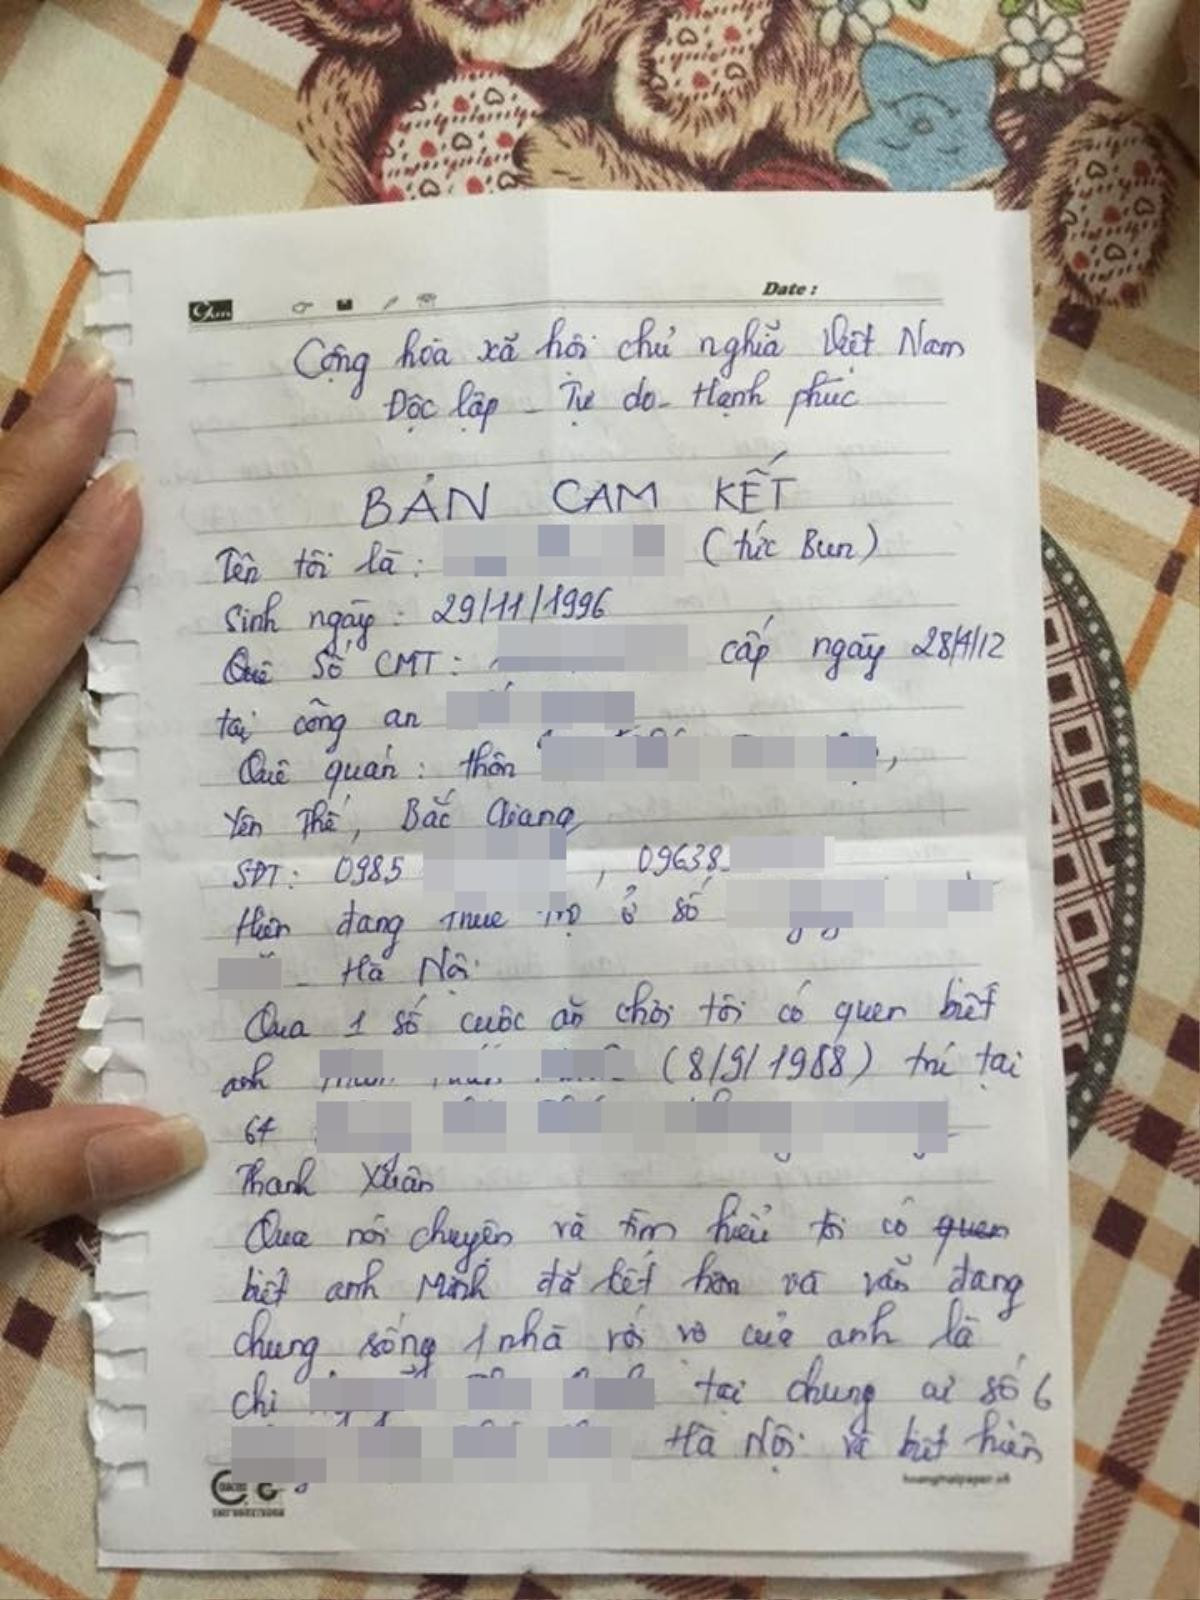 Date :
Cộng hòa xã hội chủ nghĩa Việt Nam
Độc lập - Tự do - Hạnh phúc
BẢN CAM KẾT
Tên tôi là : (tức Bun)
Sinh ngày : 29/11/1996
Quê Số CMT : cấp ngày 28/4/12
tại công an
Quê quán : thôn ,
Yên Thế, Bắc Giang,
SĐT : 0985 , 09638
Hiện đang thuê trọ ở số
- Hà Nội
Qua 1 số cuộc ăn chơi tôi có quen biết
anh (8/9/1988) trí tại
64
Thanh Xuân
Qua nói chuyện và tìm hiểu tôi có quen
biết anh Minh đã kết hôn và vẫn đang
chung sống 1 nhà với vợ của anh là
chị tại chung cư số 6
Hà Nội và biết hiện
hoanghaipaper.vn